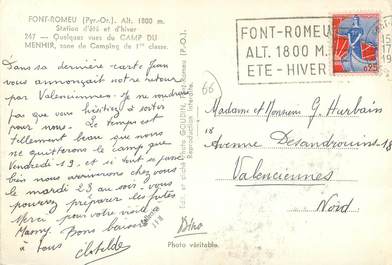 FONT-ROMEU (Pyr-Or.). Alt. 1800 m.
Station d'été et d'hiver
247 — Quelques vues du CAMP DU
MENHIR, zone de Camping de 1re classe.
Dans sa dernière carte Jean
vous annonçait notre retour
par Valenciennes. Je ne voudrais
pas que vous hésitiez à sortir
pour nous. Le temps est
tellement beau que nous
ne quitterons le camp que
Vendredi 19. et si tout se passe
bien nous arriverons chez vous
le mardi 23 au soir. Vous
pouvez préparer les frites
Merci pour votre visite à
Masny. Bons baisers
à tous Clotilde
Photo véritable.
Reproduction interdite.
FONT-ROMEU
ALT. 1800 M.
ETE - HIVER
15
17
19
0,25
66
Madame et Monsieur G. Hurbain
18 Avenue Desandrouins 18
Valenciennes
Nord